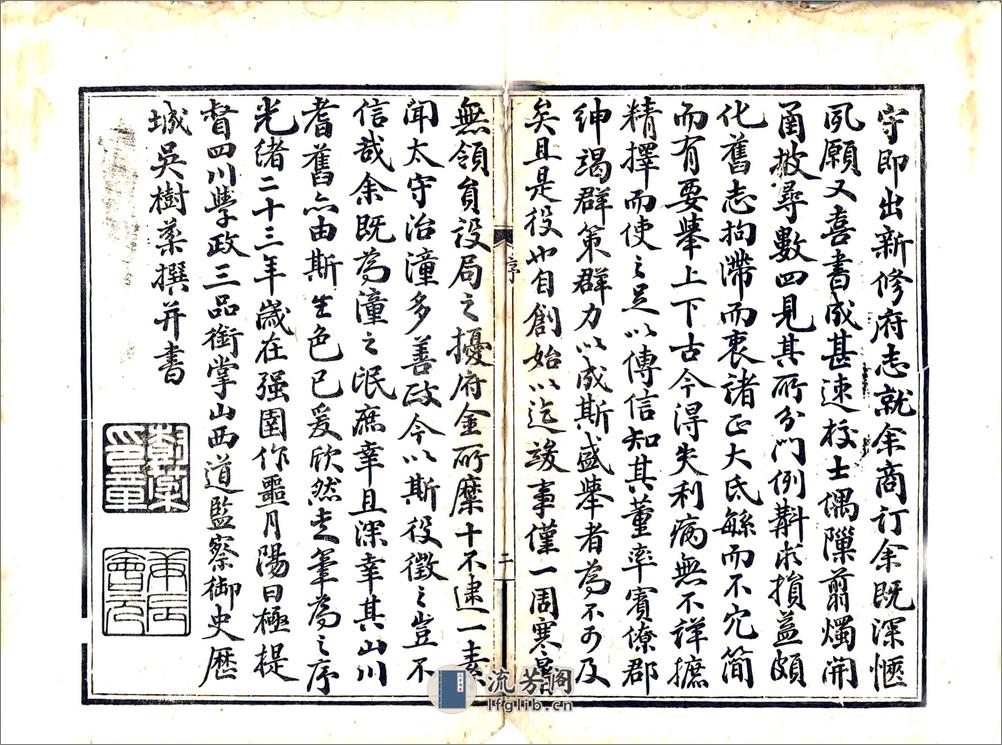 守即出新修府志就余商訂余既深愜
夙願又喜書成甚速校士偶隙翦燭開
函披尋數四見其所分門例斟求損益頗
化舊志拘滯而衷諸正大氐繇而不冗簡
而有要舉上下古今得失利病無不詳摭
精擇而使之足以傳信知其董率賓僚郡
紳竭群策群力以成斯盛舉者為不可及
矣且是役也自創始以迄竣事僅一周寒暑
序
二
無領負設局之擾府金所糜十不逮一素
聞太守治潼多善政今以斯役徵之豈不
信哉余既為潼之氓庶幸且深幸其山川
耆舊亦由斯生色已爰欣然走筆為之序
光緒二十三年歲在强圉作噩月陽日極提
督四川學政三品銜掌山西道監察御史歷
城吳樹棻撰并書
樹棻
印章
流芳閣
lfglib.cn